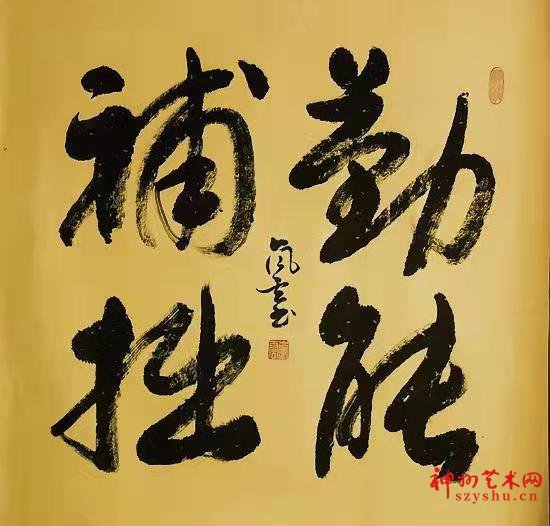 勤能
補拙
神州艺术网
szyshu.cn